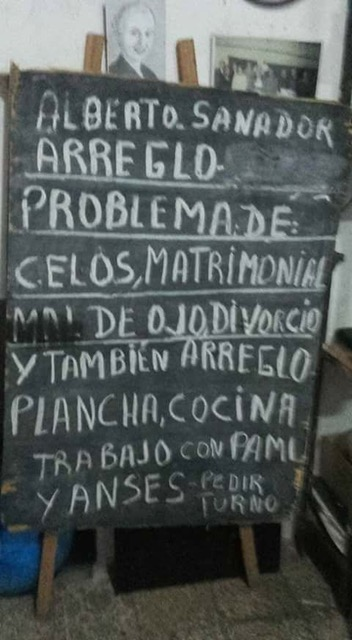 ALBERTO-SANADOR
ARREGLO-
PROBLEMA:DE:
CELOS, MATRIMONIAL
MAL DE OJO, DIVORCIO
Y TAMBIÉN ARREGLO
PLANCHA, COCINA
TRABAJO CON PAMI
Y ANSES-PEDIR
TURNO